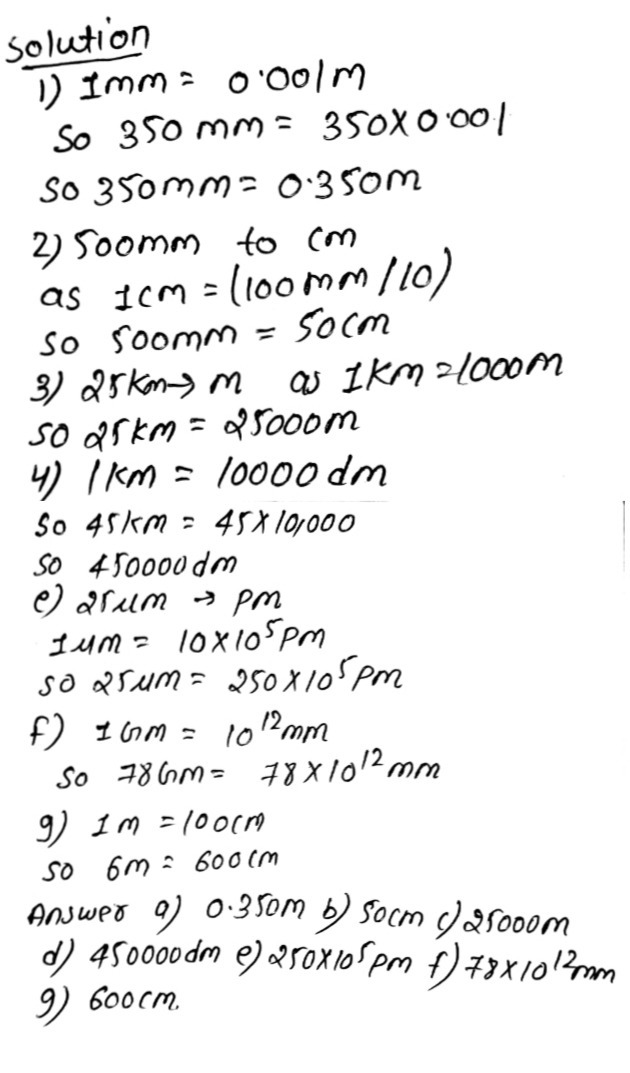 Solution
1) 1mm = 0.001m
So 350 mm = 350X0.001
So 350mm = 0.350m
2) 500mm to cm
as 1cm = (100mm/10)
so 500mm = 50cm
3) 25km→ m as 1Km=1000m
so 25km = 25000m
4) 1km = 10000 dm
So 45km = 45X10,000
so 450000dm
e) 25μm → pm
1μm = 10X10⁵pm
so 25μm = 250X10⁵pm
f) 1Gm = 10¹²mm
So 78Gm = 78X10¹²mm
g) 1m =100cm
so 6m = 600cm
Answer a) 0.350m b) 50cm c) 25000m
d) 450000dm e) 250X10⁵pm f) 78X10¹²mm
g) 600cm.